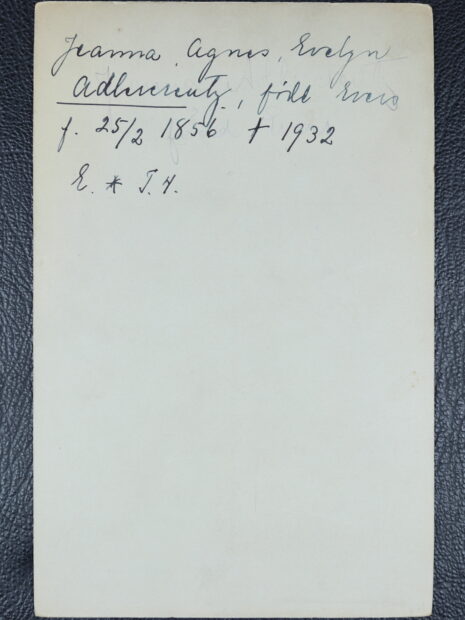 Jeanna, Agnes, Evelyn
Adlercreutz, född Evers
f. 25/2 1856 † 1932
E. * T. H.